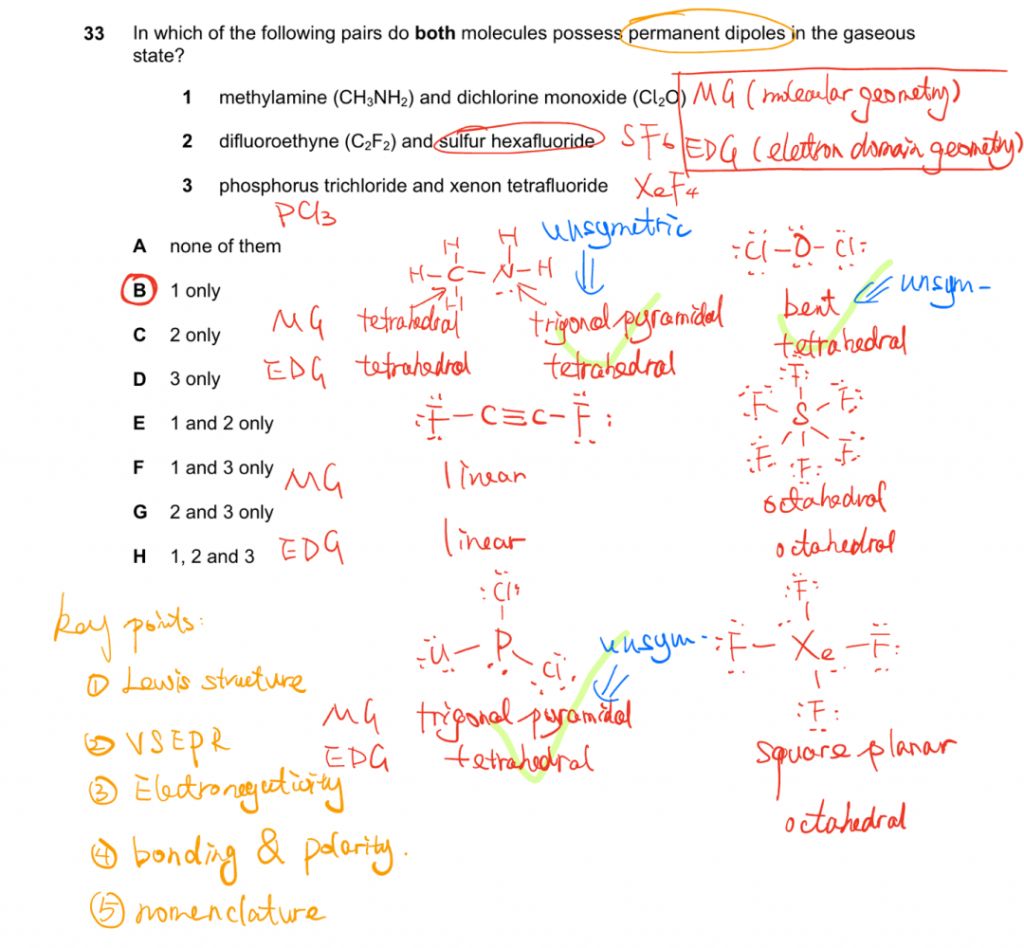 33 In which of the following pairs do both molecules possess permanent dipoles in the gaseous
state?
1 methylamine (CH₃NH₂) and dichlorine monoxide (Cl₂O) MG (molecular geometry)
2 difluoroethyne (C₂F₂) and sulfur hexafluoride SF6 EDG (elettron domain geometry)
3 phosphorus trichloride and xenon tetrafluoride XeF4
PCl3
A none of them
B 1 only
C 2 only
D 3 only
E 1 and 2 only
F 1 and 3 only
G 2 and 3 only
H 1, 2 and 3
unsymetric
H H
H-C-N-H
H
:Cl-O-Cl:
unsym-
MG tetrahedral trigonal pyramidal bent
EDG tetrahedral tetrahedral tetrahedral
:F-C≡C-F:
F
F S F
F F F
MG linear octahedral
EDG linear octahedral
:Cl:
P Cl
unsym-
:F:
:F-Xe-F:
:F:
MG trigonal pyramidal square planar
EDG tetrahedral octahedral
key points:
① Lewis structure
② VSEPR
③ Electronegativity
④ bonding & polarity.
⑤ nomenclature